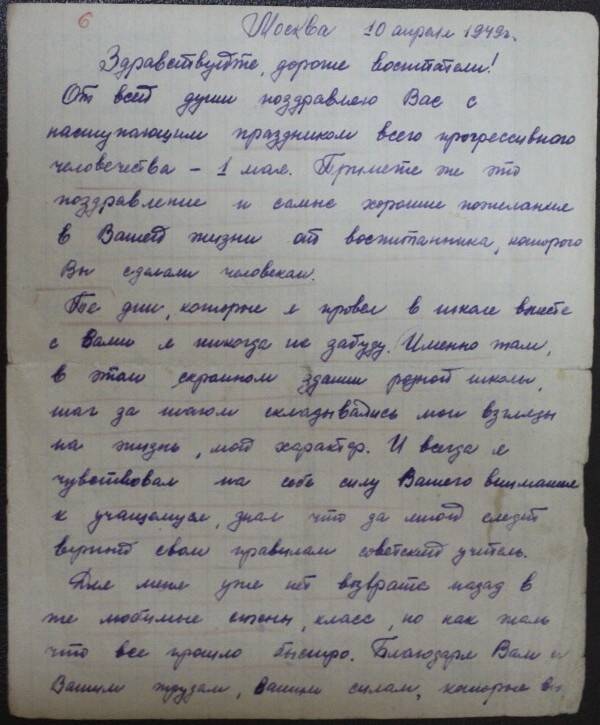 6
Москва 10 апреля 1949г.
Здравствуйте, дорогие воспитатели!
От всей души поздравляю Вас с
наступающим праздником всего прогрессивного
человечества – 1 мая. Примете же это
поздравление и самые хорошие пожелание
в Вашей жизни от воспитанника, которого
Вы сделали человеком.
Те дни, которые я провел в школе вместе
с Вами я никогда не забуду. Именно там,
в этом скромном здании родной школы,
шаг за шагом складывались мои взгляды
на жизнь, мой характер. И всегда я
чувствовал на себе силу Вашего внимание
к учащемуся, знал что за мной следит
верный своим правилам советский учитель.
Для меня уже нет возврата назад в
же любимые стены, класс, но как жаль
что все прошло быстро. Благодаря Вам и
Вашим трудам, Вашим силам, которые вы